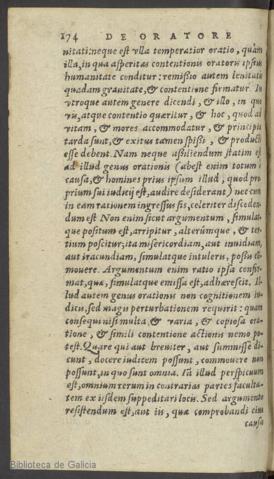 174 DE ORATORE
nitati: neque est vlla temperatior oratio, quàm
illa, in qua asperitas contentionis oratoris ipsius
humanitate conditur: remissio autem lenitatis
quadam grauitate, & contentione firmatur. In
vtroque autem genere dicendi, & illo, in quo
vis, atque contentio quæritur, & hoc, quod ad
vitam, & mores accommodatur, & principia
tarda sunt, & exitus tamen spissi, & producti
esse debent. Nam neque assiliendum statim est
ad illud genus orationis (abest enim totum à
causa, & homines prius ipsum illud, quod pro
prium sui iudicij est, audire desiderant) nec cum
in eam rationem ingressus sis, celeriter disceden-
dum est. Non enim sicut argumentum, simulat-
que positum est, arripitur, alterúmque, & ter-
tium poscitur, ita misericordiam, aut inuidiam,
aut iracundiam, simulatque intuleris, possis co-
mouere. Argumentum enim ratio ipsa confir-
mat, quæ, simulatque emissa est, adhærescit. Il-
lud autem genus orationis non cognitionem iu-
dicis, sed magis perturbationem requirit: quam
consequi nisi multa & varia, & copiosa ora-
tione, & simili contentione actionis nemo po-
test. Quare qui aut breuiter, aut summisse di-
cunt, docere iudicem possunt, commouere non
possunt, in quo sunt omnia. Iã illud perspicuum
est, omnium rerum in contrarias partes faculta-
tem ex iisdem suppeditari locis. Sed argumento
resistendum est, aut iis, quæ comprobandi eius
causa
Biblioteca de Galicia